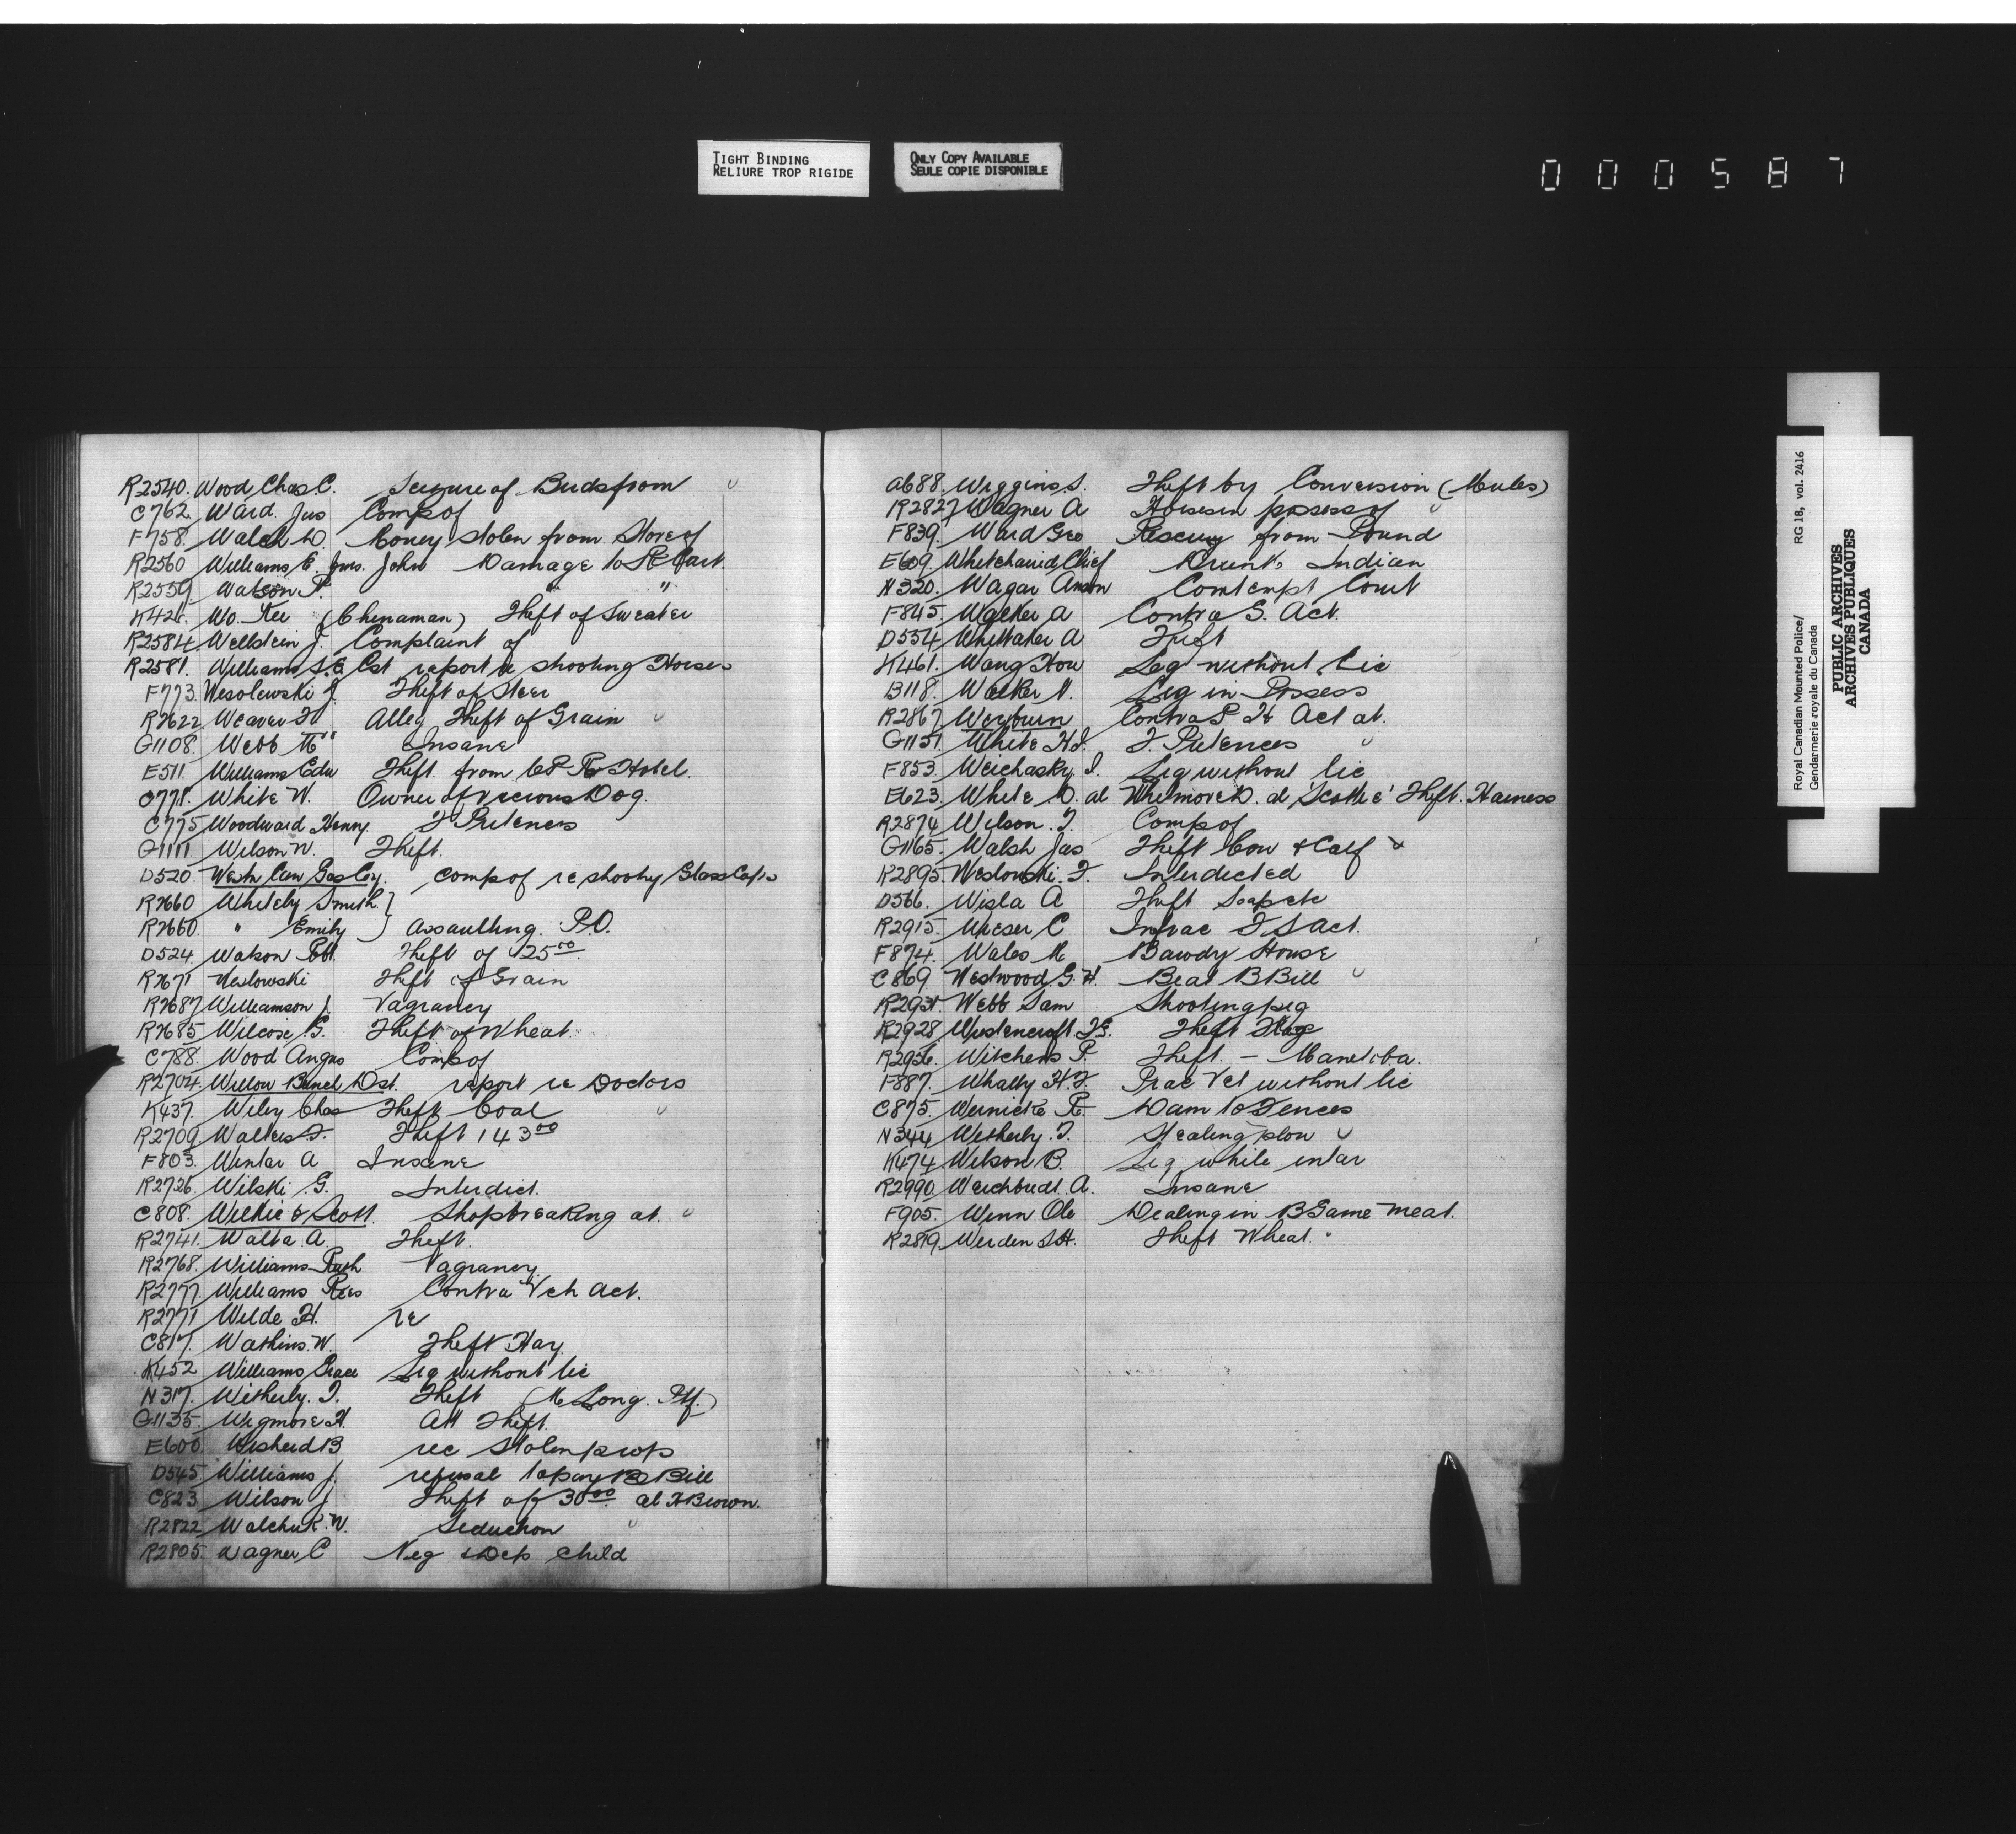 TIGHT BINDING
RELIURE TROP RIGIDE
ONLY COPY AVAILABLE
SEULE COPIE DISPONIBLE
000587
R2540. Wood Chas. C. Seizure of Birds from
C762. Ward. Jas Comp of
F758. Walch D. Money stolen from Store of
R2560 Williams E. Jms. John Damage to
R2559. Watson P. "
K426. Wo. Kee (Chinaman) Theft of Sweater
R2584 Wellstein J. Complaint of
R2581. Williams S.E. Cst report re shooting Horses
F773. Wesolewski J Theft of Steer
R2622 Weaver F Alleg Theft of Grain
G1108. Webb Insane
E511. Williams Edw Theft from C P R Hotel.
C778. White W. Owner of Vicious Dog.
C775 Woodward Henry. F Pretences
G1111 Wilson W. Theft.
D520. Westn Can Gas Coy. Comp of re shooting Glass Caps
R2660 Whiteby Smith. }
R2660. " Emily } Assaulting. P.O.
D524. Watson Robt. Theft of 25 00
R2671 Weslowski Theft of Grain
R2687 Williamson J. Vagrancy
R2685 Wilcox G. Theft of Wheat.
C788. Wood Angus Comp of
R2704. Willow Bunch Dst. report re Doctors
K437. Wiley Chas Theft Coal
R2709 Walters F. Theft 143 00
F803. Winter A Insane
R2726. Wilski G. Interdict.
C808. Wilkie & Scott. Shopbreaking at.
R2741. Walta. A. Theft.
R2768. Williams Rush Vagrancy.
R2777. Williams Rees Contra Veh Act.
R2771 Wilde H. re
C817. Watkins. W. Theft Hay.
K452 Williams Grace Liq without lic
N317. Witherly. T. Theft (M Long. Ptf.)
G1135. Wigmore H. Att Theft.
E600. Wisherd B rec stolen prop
D545. Williams J. refusal to pay B Bill
C823 Wilson J Theft of 30 00 al H Brown.
R2822 Walchuk. W. Seduction
R2805. Wagner C Neg & Dep Child
A688. Wiggins S. Theft by Conversion (Mules)
R2827 Wagner A Horses in possess of
F839. Ward Geo Rescuing from Pound
E609. Drunk Indian
N320. Wagar Amon Contempt Court
F845. Walker A Contra G. Act.
D554 Whittaker A Theft
K461. Wong How Liq without Lic
B118. Walker N. Liq in Possess
R2867 Weyburn Contra P H Act at.
G1151. White H.J. F. Pretences
F853. Weichasky. I. Liq without lic
E623. White D. al Whitmore D. al Theft. Harness
R2874 Wilson. T. Comp of
G1165. Walsh Jas Theft Cow & Calf
R2895. Weslowski. F. Interdicted
D566. Wisla A Theft Soap etc
R2915. Wieser C Infrac F S Act.
F874. Wales M Bawdy House
C869 Westwood. G. H. Beat B Bill
R2931. Webb Sam Shooting pig
R2928 Theft
R2956. Witchens P. Theft. — Manitoba.
F887. Whally H.F. Prac Vet without lic
C875. Wernicke R. Dam to Fences
N344 Witherly. T. Stealing plow
K474 Wilson B. Liq while inter
R2990. Weichbudt. A. Insane
F905. Winn Ole Dealing in B Game meat.
R2819. Werden S.H. Theft Wheat.
Royal Canadian Mounted Police/ RG 18, vol. 2416
Gendarmerie royale du Canada
PUBLIC ARCHIVES
ARCHIVES PUBLIQUES
CANADA